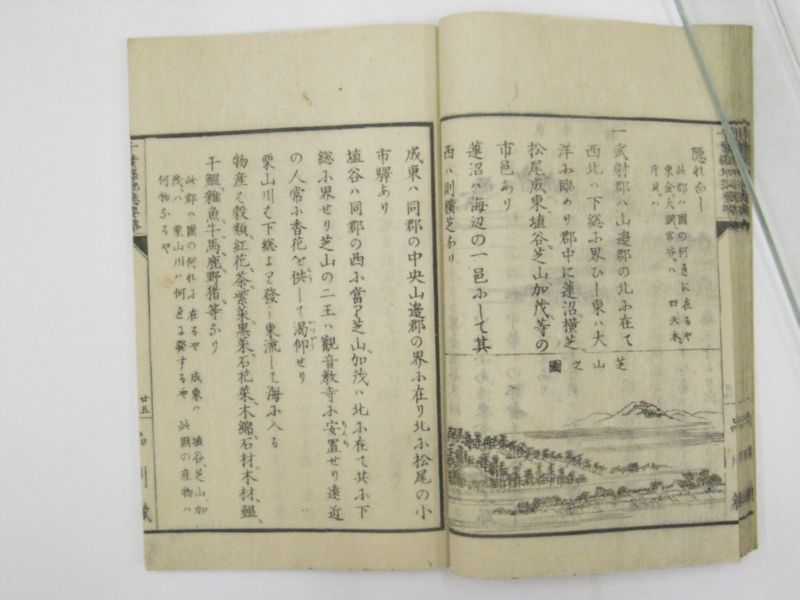 隠れなし
此郡ハ國の何れに在るや
東金大網宮谷ハ 四天木
片貝ハ
一武射郡ハ山邉郡の北ふ在て
西北ハ下総ふ界ひし東ハ大
洋ふ臨めり郡中に蓮沼、横芝、
松尾成東、埴谷、芝山加茂、等の
市邑あり
蓮沼ハ海辺の一邑ふして其
西ハ則横芝なり
芝山之圖
成東ハ同郡の中央山邉郡の界ふ在り北ふ松尾の小
市驛あり
埴谷ハ同郡の西ふ當り芝山加茂ハ北ふ在て其ふ下
総ふ界せり芝山の二王ハ觀音教寺ふ安置せり遠近
の人常ふ香花を供して渇仰せり
栗山川は下総より發し東流して海ふ入る
物産は穀類、紅花、茶、紫菜、黒菜、石花菜、木綿、石材、木材、鰮、
干鰮、雜魚、牛馬、鹿、野猪、等なり
此郡ハ國の何れふ在るや 成東ハ 埴谷、芝山、加
茂、ハ 栗山川ハ何れに發するや 此國の産物ハ
何物なるや
廿五